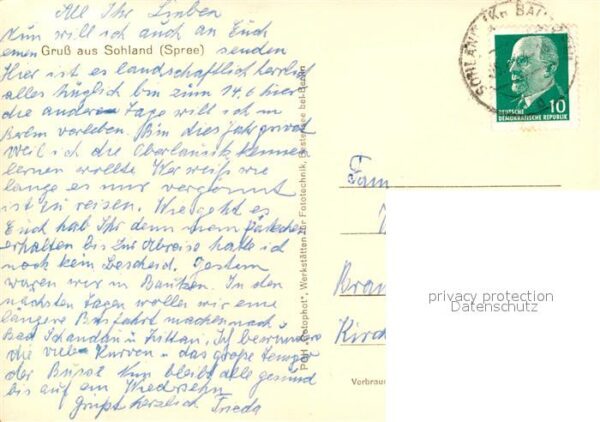 All Ihr Lieben
Nun will ich auch an Euch
einen Gruß aus Sohland (Spree) senden
Hier ist es landschaftlich herrlich
alles hüglich bin zum 14.6 hier
die anderen Tage will ich in
Berlin verleben. Bin dies Jahr privat
weil ich die Oberlausitz kennen
lernen wollte Wer weiß wie
lange es mir vergönnt
ist zu reisen. Wie geht es
Euch hab Ihr denn mein Päckchen
erhalten bis zur Abreise hatte ich
noch kein Bescheid. Gestern
waren wir in Bautzen. In den
nächsten Tagen wollen wir eine
längere Busfahrt machen nach
Bad Schandau u Zittau. Ich bewundere
die vielen Kurven u das große Tempo
der Busse Nun bleibt alle gesund
bis auf ein Wiedersehn
grüßt herzlich Frieda
PGH „Rotophot", Werkstätten für Fototechnik, Bestensee bei Berlin
SOHLAND (Kr BAU
10
DEUTSCHE
DEMOKRATISCHE REPUBLIK
Fam
Kirch
Verbrau
privacy protection
Datenschutz